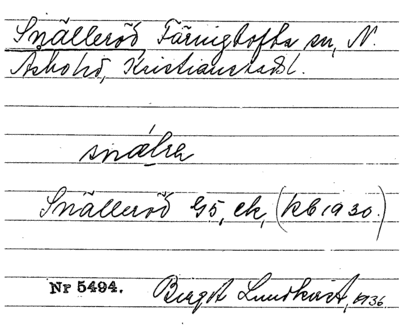 Snälleröd Färingtofta sn, N.
Asbo hd, Kristianstad l.
Snälleröd G5, ek, (kb 1930.)
Nr 5494. Birgit Lundkvist, 1936